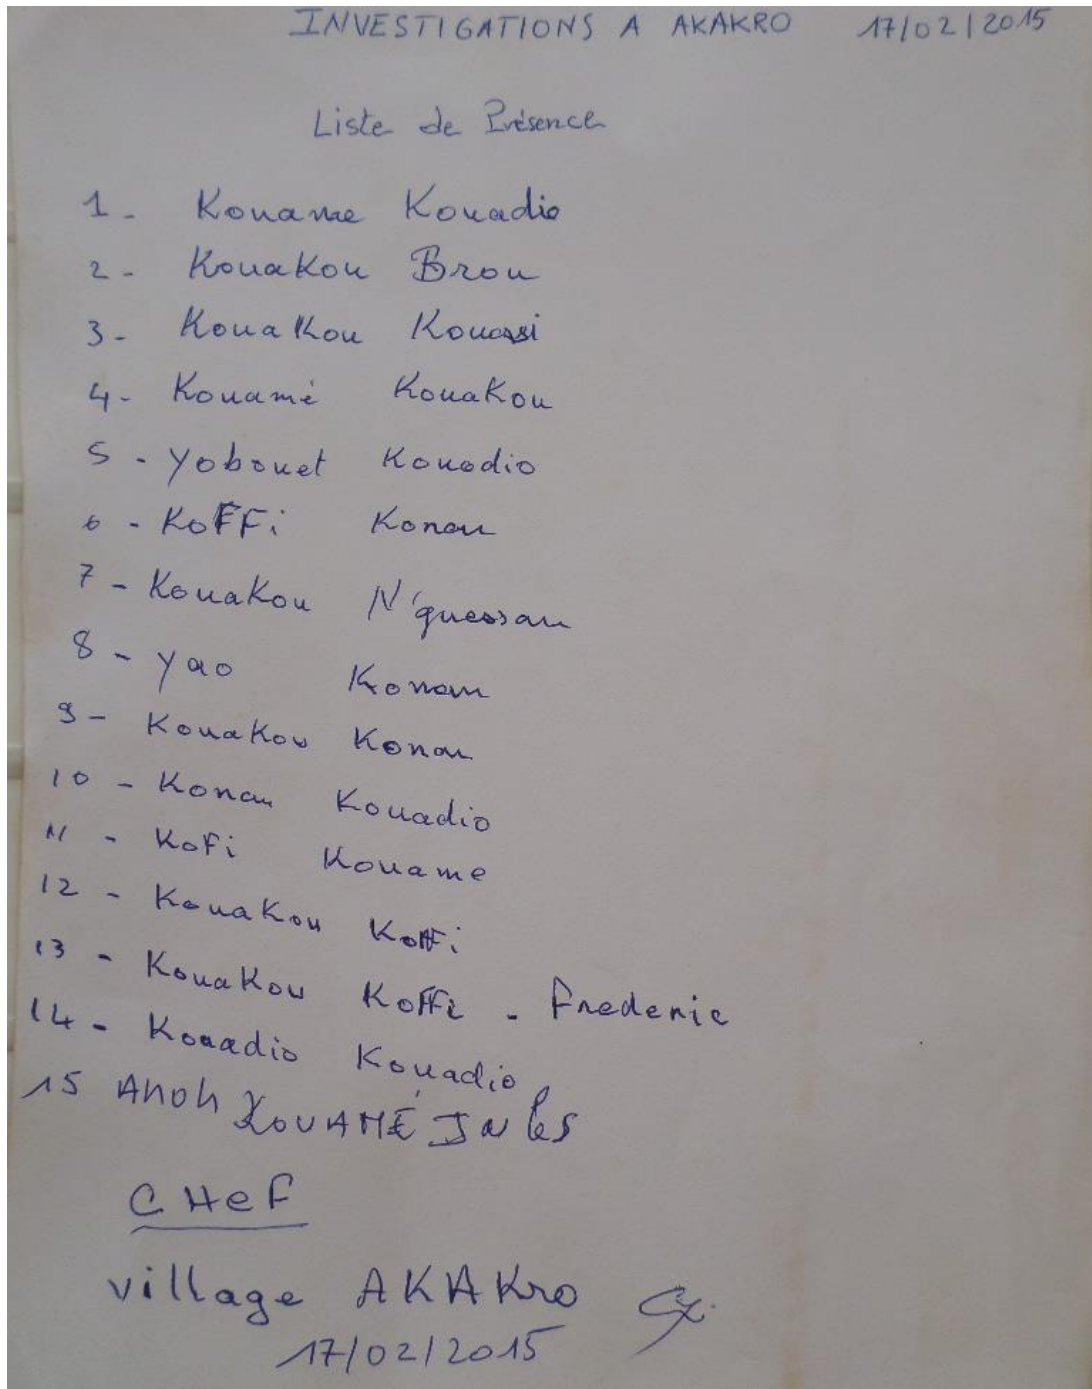 INVESTIGATIONS A AKAKRO 17/02/2015
Liste de Présence
1- Kouame Kouadio
2- Kouakou Brou
3- Kouakou Kouassi
4- Kouamé Kouakou
5- Yobouet Kouadio
6- KoFFi Konan
7- Kouakou N'guessan
8- Yao Konan
9- Kouakou Konan
10- Konan Kouadio
11- KoFi Kouame
12- Kouakou Koffi
13- Kouakou Koffi - Frederic
14- Kouadio Kouadio
15 ANOH KOUAMÉ
CHeF
village AKAKro
17/02/2015